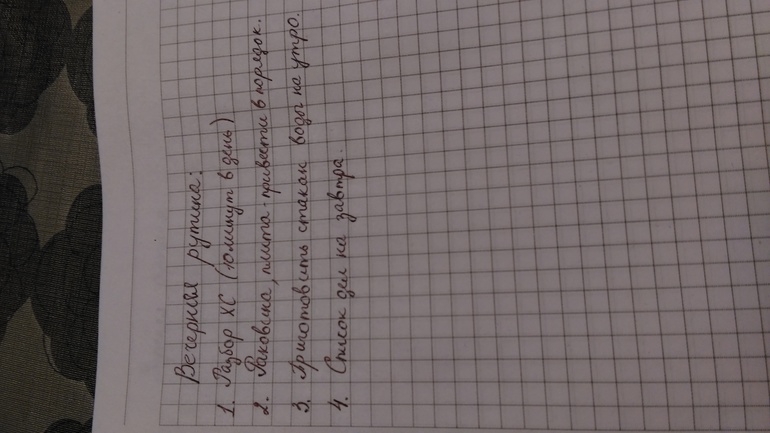 Вечерняя рутина:
1. Разбор ХС (10 минут в день)
2. Раковина, плита - привести в порядок.
3. Приготовить стакан воды на утро.
4. Список дел на завтра.